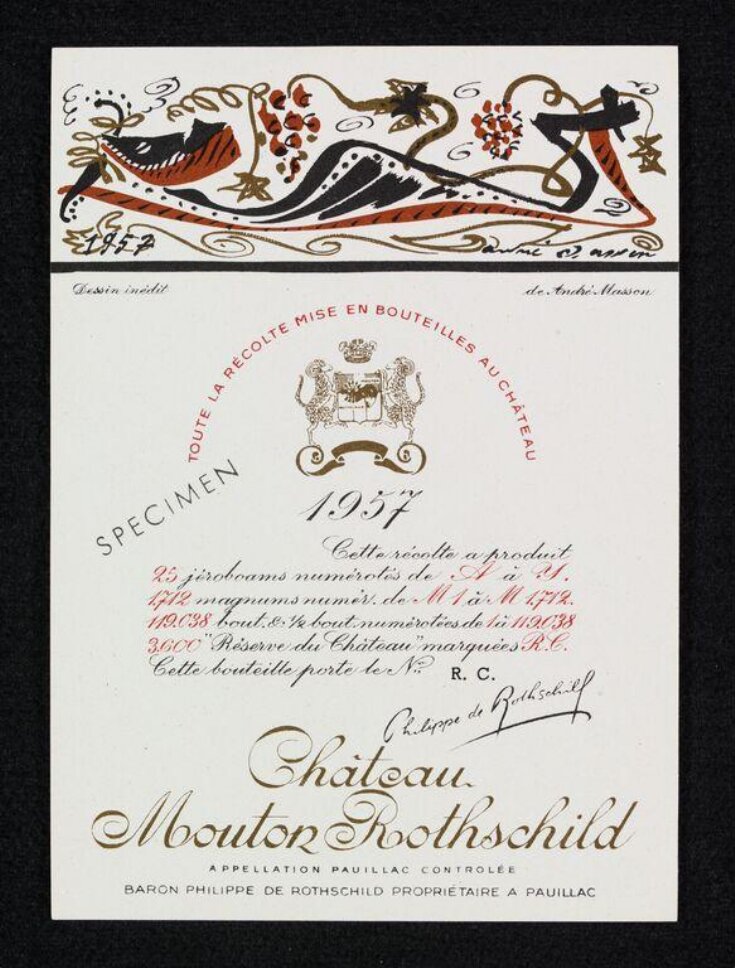 1957
André Masson
Dessin inédit
de André Masson
TOUTE LA RÉCOLTE MISE EN BOUTEILLES AU CHÂTEAU
SPECIMEN
1957
Cette récolte a produit
25 jéroboams numérotés de A à Y.
1,712 magnums numér. de M 1 à M 1,712.
119.038 bout. & ½ bout. numérotées de 1 à 119.038
3,600 "Réserve du Château" marquées R.C.
Cette bouteille porte le Nº R. C.
Philippe de Rothschild
Château
Mouton Rothschild
APPELLATION PAUILLAC CONTROLÉE
BARON PHILIPPE DE ROTHSCHILD PROPRIÉTAIRE A PAUILLAC